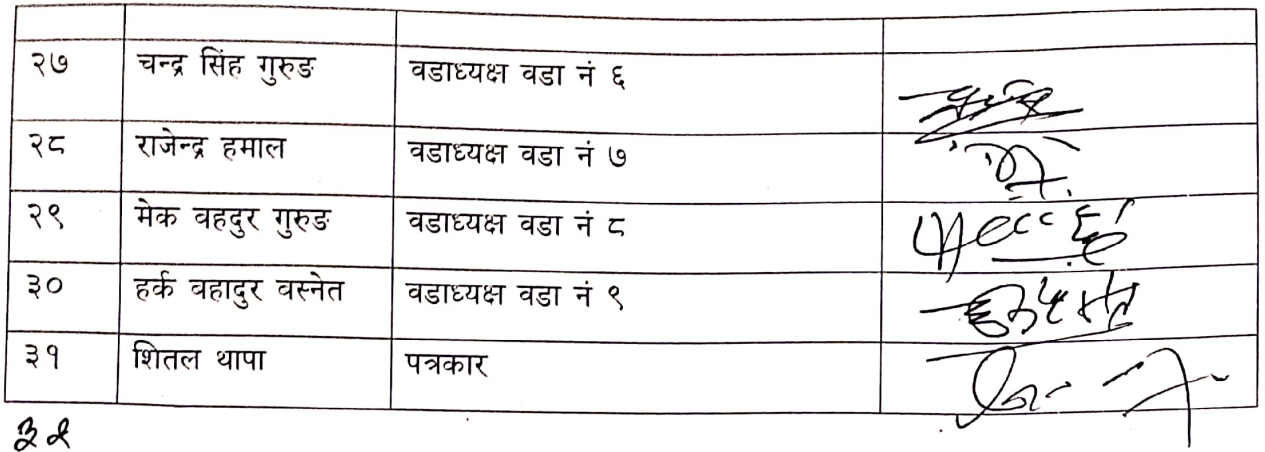 २७ चन्द्र सिंह गुरुङ वडाध्यक्ष वडा नं ६
२८ राजेन्द्र हमाल वडाध्यक्ष वडा नं ७
२९ मेक वहदुर गुरुङ वडाध्यक्ष वडा नं ८
३० हर्क वहादुर वस्नेत वडाध्यक्ष वडा नं ९
३१ शितल थापा पत्रकार
३२